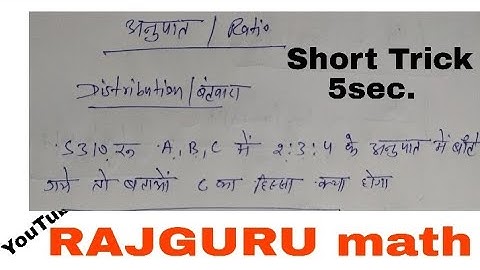 अनुपात / Ratio
Short Trick
5sec.
Distribution / बंटवारा
5310 रू A, B, C में 2:3:4 के अनुपात में बाँटे
जाये तो बताओं C का हिस्सा क्या होगा
YouTub
RAJGURU math